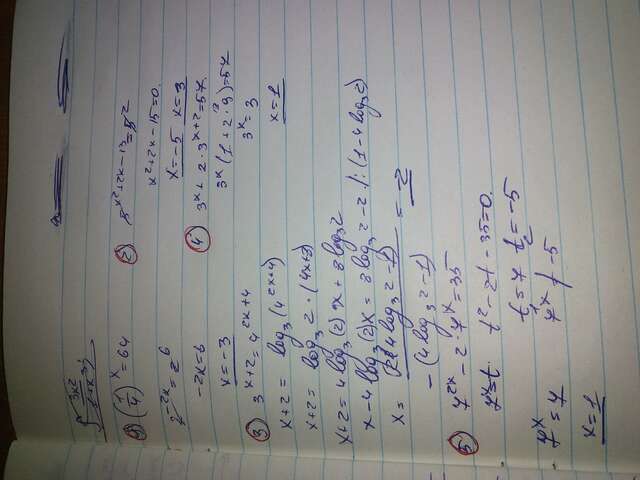 1) (1/4)^x = 64
2^-2x = 2^6
-2x = 6
x = -3
2) 5^x²+2x-13 = 5^2
x²+2x-15=0.
x=-5 x=3
3) 3^x+2 = 4^2x+4
x+2 = log₃(4^2x+4)
x+2 = log₃2·(4x+8)
x+2 = 4log₃(2)x + 8log₃2
x-4log₃(2)x = 8log₃2-2 /:(1-4log₃2)
-(4log₃2-1)
= -2
4) 3^x + 2·3^x+2 = 57.
3^x(1+2·9)=57
3^x = 3
x=1
5) 7^2x - 2·7^x = 35
7^x = t
t²-2t-35=0.
t₁=7 t₂=-5
7^x ≠ -5
7^x = 7
x=1